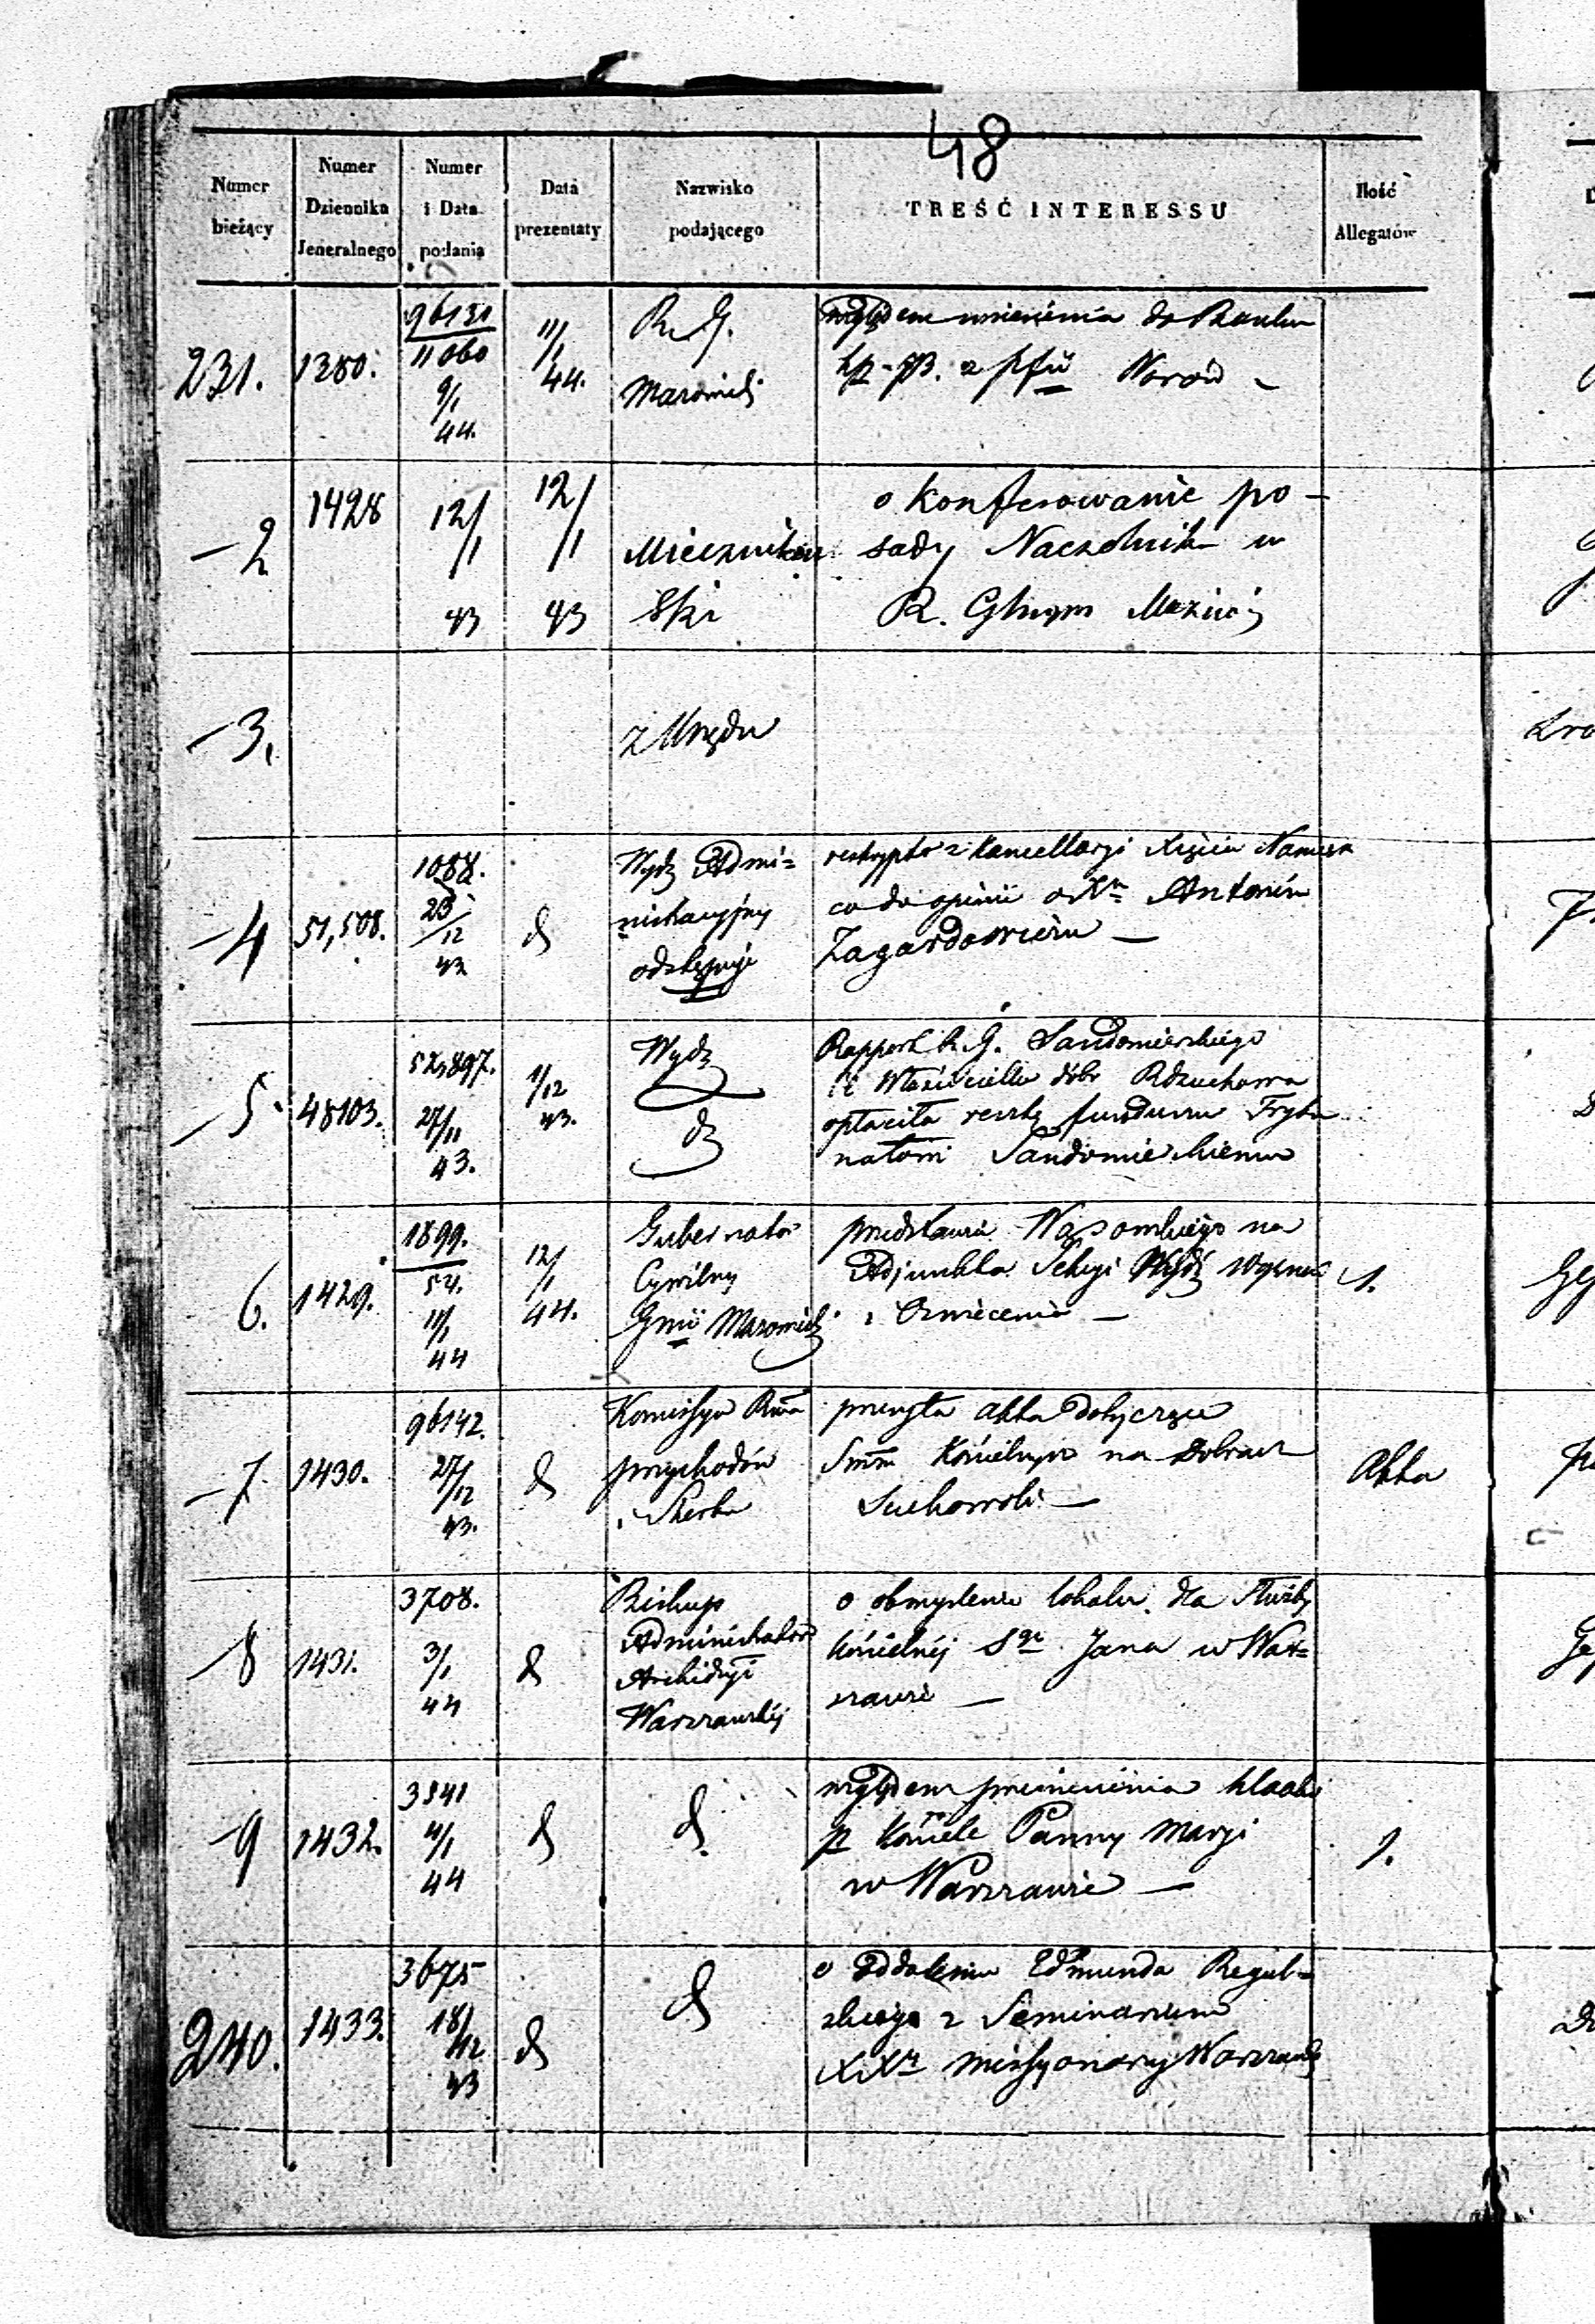 48
Numer bieżący
Numer Dziennika Jeneralnego
Numer i Data podania
Data prezentaty
Nazwisko podającego
TREŚĆ INTERESSU
Ilość Allegatów
231. 1380. 96131 11060 9/1 44. 11/1 44. R. G. względem wniesienia do Banku
Mazowiec
2 1428 12/1 43 12/1 43 o konferowanie po-
Miecznikow sady Naczelnika w
ski R.
3. z Urzędu
4 51,508. 1088. 23/12 43 d Wydz Admi= reskrypt z Kancellaryi Xięcia Namies
nistracyjny co do opinii o Xu Antonim
odstępuje Zagardowiczu —
5. 48103. 52,897. 27/11 43. 1/12 43. Wydz Rapport R. G. Sandomierskiego
iż Właścicielka dóbr Rdzuchowa
d opłaciła resztę funduszu Trybu
natowi Sandomierskiemu
6. 1429. 1899. 54. 11/1 44 12/1 44. Gubernator przedstawia na 1.
Cywilny Adjunkta Sekcyi Wydz Wyznań
Gnii Mazowieck i Oświecenia —
7 1430. 96142. 27/12 43. d Komissya Rwa przesyła akta dotyczące Akta
przychodów Summ Kościelnych na Dobrach
i Skarbu Suchowoli —
8 1431. 3708. 3/1 44 d Biskup o obmyślenie lokalu dla służby
Administrator kościelnéj Sgo Jana w War=
Archidyi szawie —
Warszawskiéj
9 1432. 3841 4/1 44 d d. względem przeniesienia 1.
p Kościele Panny Maryi
w Warszawie —
240. 1433. 3675 18/12 43 d d o oddaleniu Edmunda Regul=
skiego z Seminarium
XXy Missyonarzy Warszaws